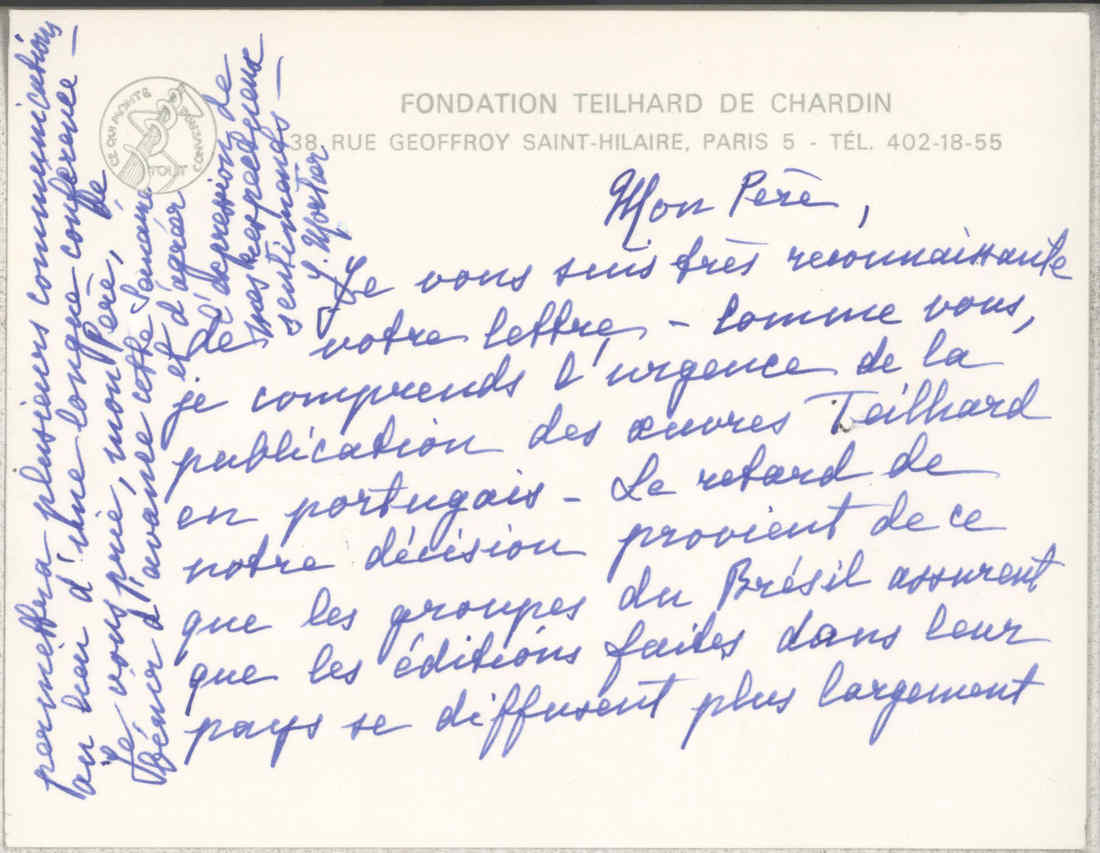 FONDATION TEILHARD DE CHARDIN
38, RUE GEOFFROY SAINT-HILAIRE, PARIS 5 - TÉL. 402-18-55
CE QUI MONTE CONVERGE
TOUT
Mon Père,
Je vous suis très reconnaissante
de votre lettre, - Comme vous,
je comprends l'urgence de la
publication des œuvres Teilhard
en portugais - Le retard de
notre décision provient de ce
que les groupes du Brésil assurent
que les éditions faites dans leur
pays se diffusent plus largement
permettra plusieurs communications
au lieu d'une longue conférence -
Je vous prie, mon Père, de
bénir d'avance cette Semaine
et d'agréer
l'expression de
mes respectueux
sentiments -
J. Mortier